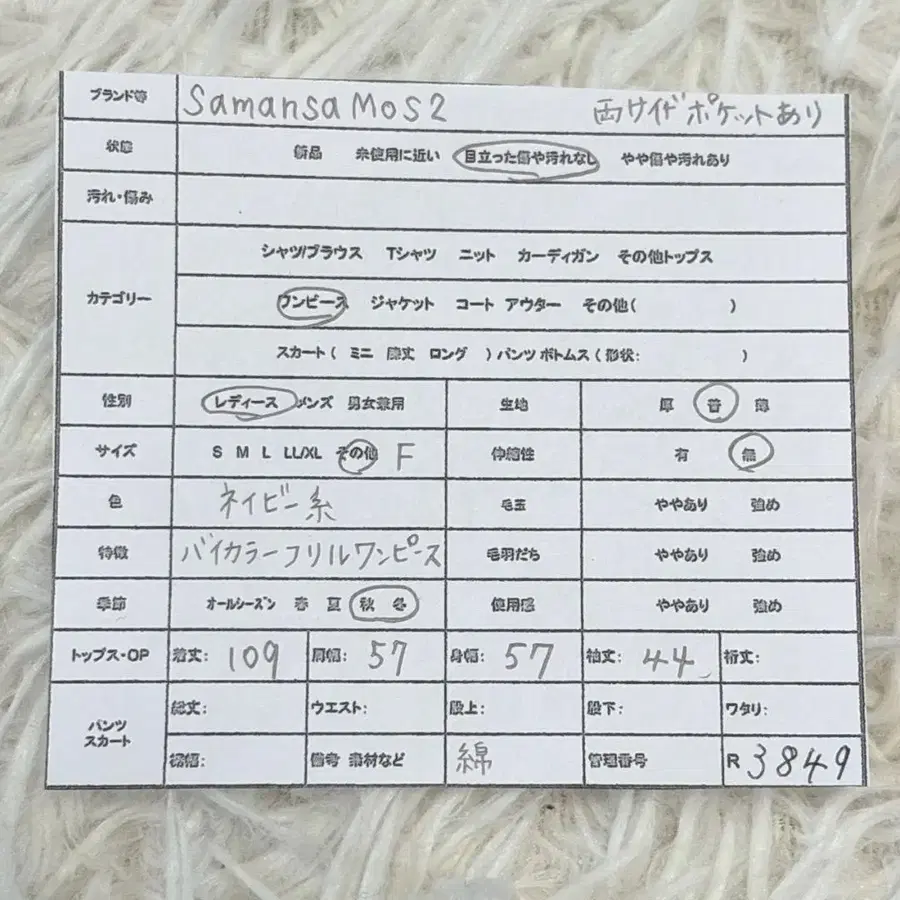 ブランド等 Samansa Mos2 両サイドポケットあり
状態 新品 未使用に近い 目立った傷や汚れなし やや傷や汚れあり
汚れ・傷み
カテゴリー シャツ/ブラウス Tシャツ ニット カーディガン その他トップス
ワンピース ジャケット コート アウター その他( )
スカート( ミニ 膝丈 ロング )パンツ ボトムス(形状: )
性別 レディース メンズ 男女兼用 生地 厚 普 薄
サイズ S M L LL/XL その他 F 伸縮性 有 無
色 ネイビー系 毛玉 ややあり 強め
特徴 バイカラーフリルワンピース 毛羽だち ややあり 強め
季節 オールシーズン 春 夏 秋 冬 使用感 ややあり 強め
トップス・OP 着丈: 109 肩幅: 57 身幅: 57 袖丈: 44 裄丈:
パンツ スカート 総丈: ウエスト: 股上: 股下: ワタリ:
裾幅: 備考 素材など 綿 管理番号 R 3849